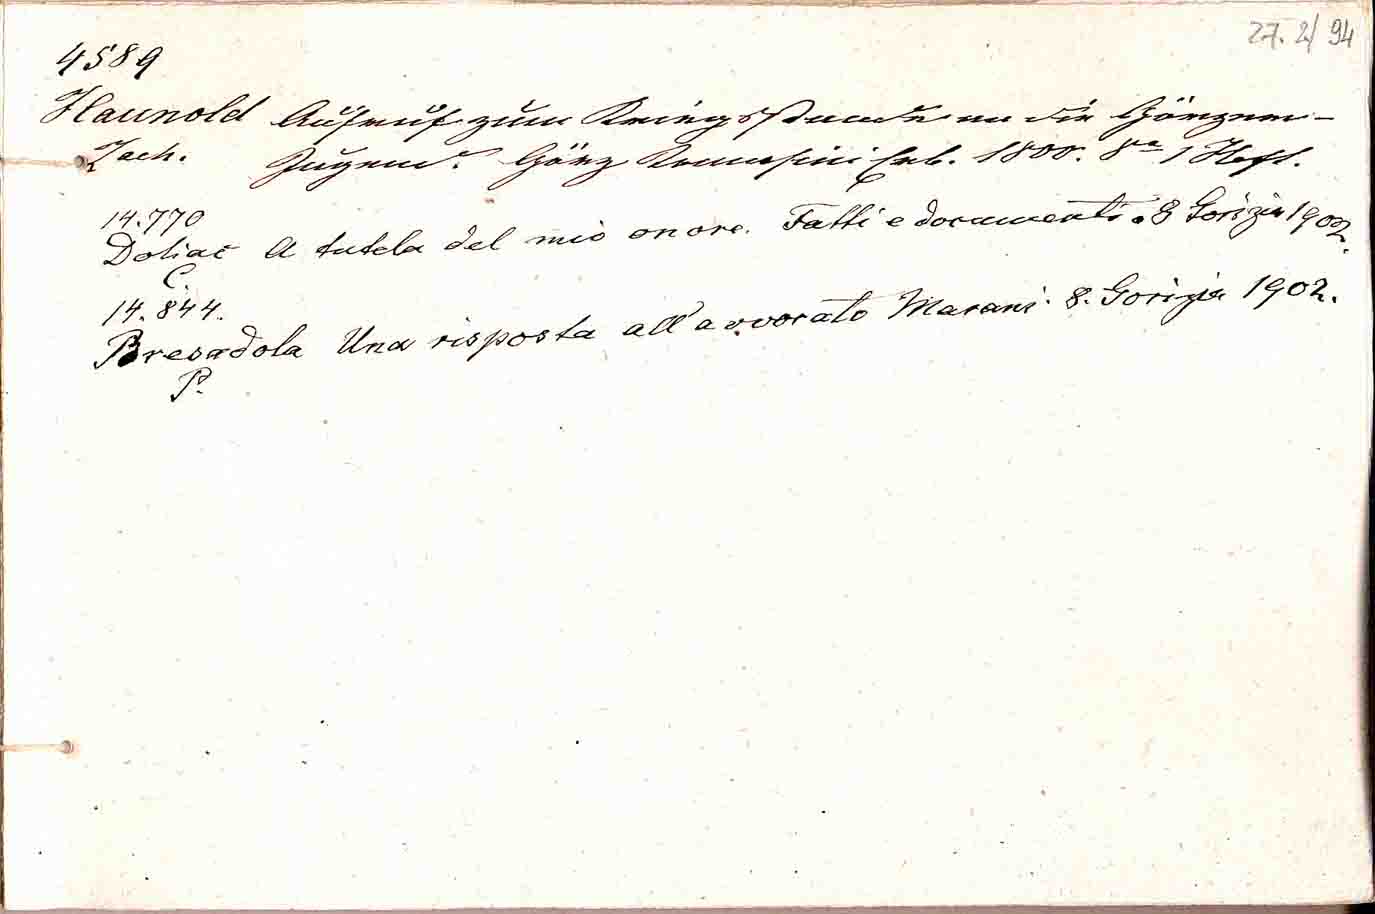 27. 2/94
4589
Haunold Aufruf zum Kriegsstande an die Görzer-
Zach. Jugend. Görz Tommasini Erb. 1800. 8° 1 Heft.
14.770
Doliač A tutela del mio onore. Fatti e documenti. 8 Gorizia 1902.
C.
14.844.
Bresadola Una risposta all'avvocato Marani. 8. Gorizia 1902.
P.